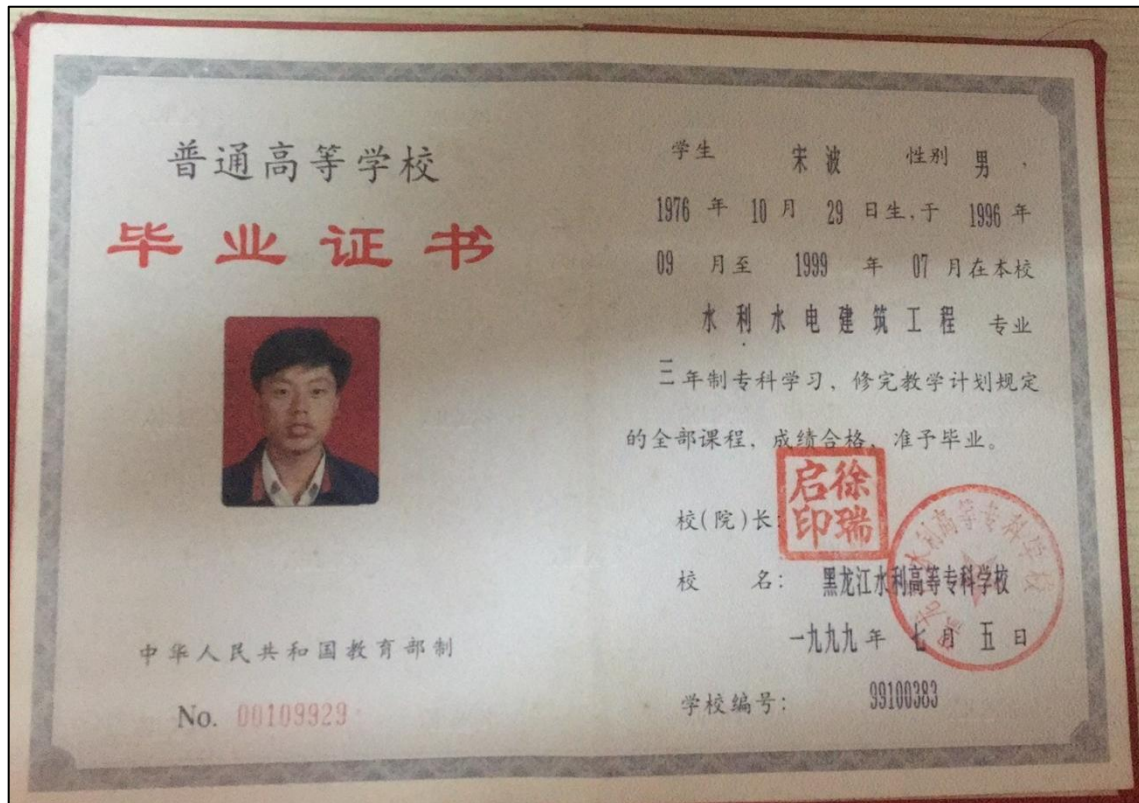 普通高等学校
毕业证书
中华人民共和国教育部制
No. 00109929
学生 宋波 性别 男，
1976 年 10 月 29 日生，于 1996 年
09 月至 1999 年 07 月在本校
水利水电建筑工程 专业
三年制专科学习，修完教学计划规定
的全部课程，成绩合格，准予毕业。
校(院)长：
徐瑞启印
校 名： 黑龙江水利高等专科学校
黑龙江水利高等专科学校
一九九九年 七月 五日
学校编号： 99100383